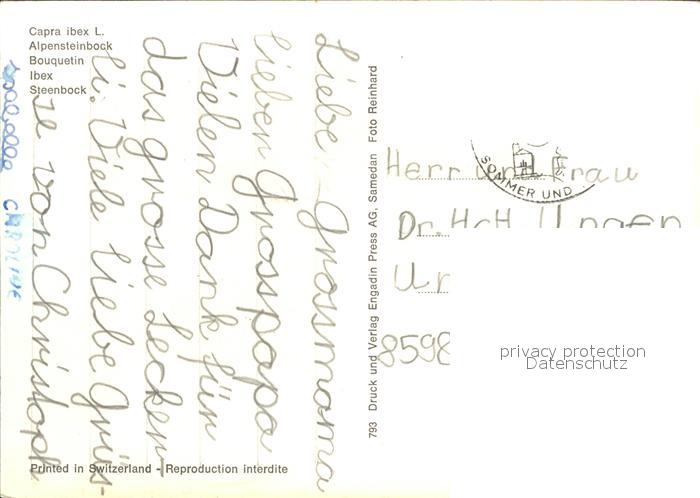 Capra ibex L.
Alpensteinbock
Bouquetin
Ibex
Steenbock
Liebe Grossmama
lieben Grosspapa
Vielen Dank für
das grosse Lecker
li. Viele liebe Grüs-
se von Christoph
CAROLINE
793 Druck und Verlag Engadin Press AG, Samedan Foto Reinhard
SOMMER UND
Herr und Frau
Dr. H.
8598
privacy protection
Datenschutz
Printed in Switzerland - Reproduction interdite